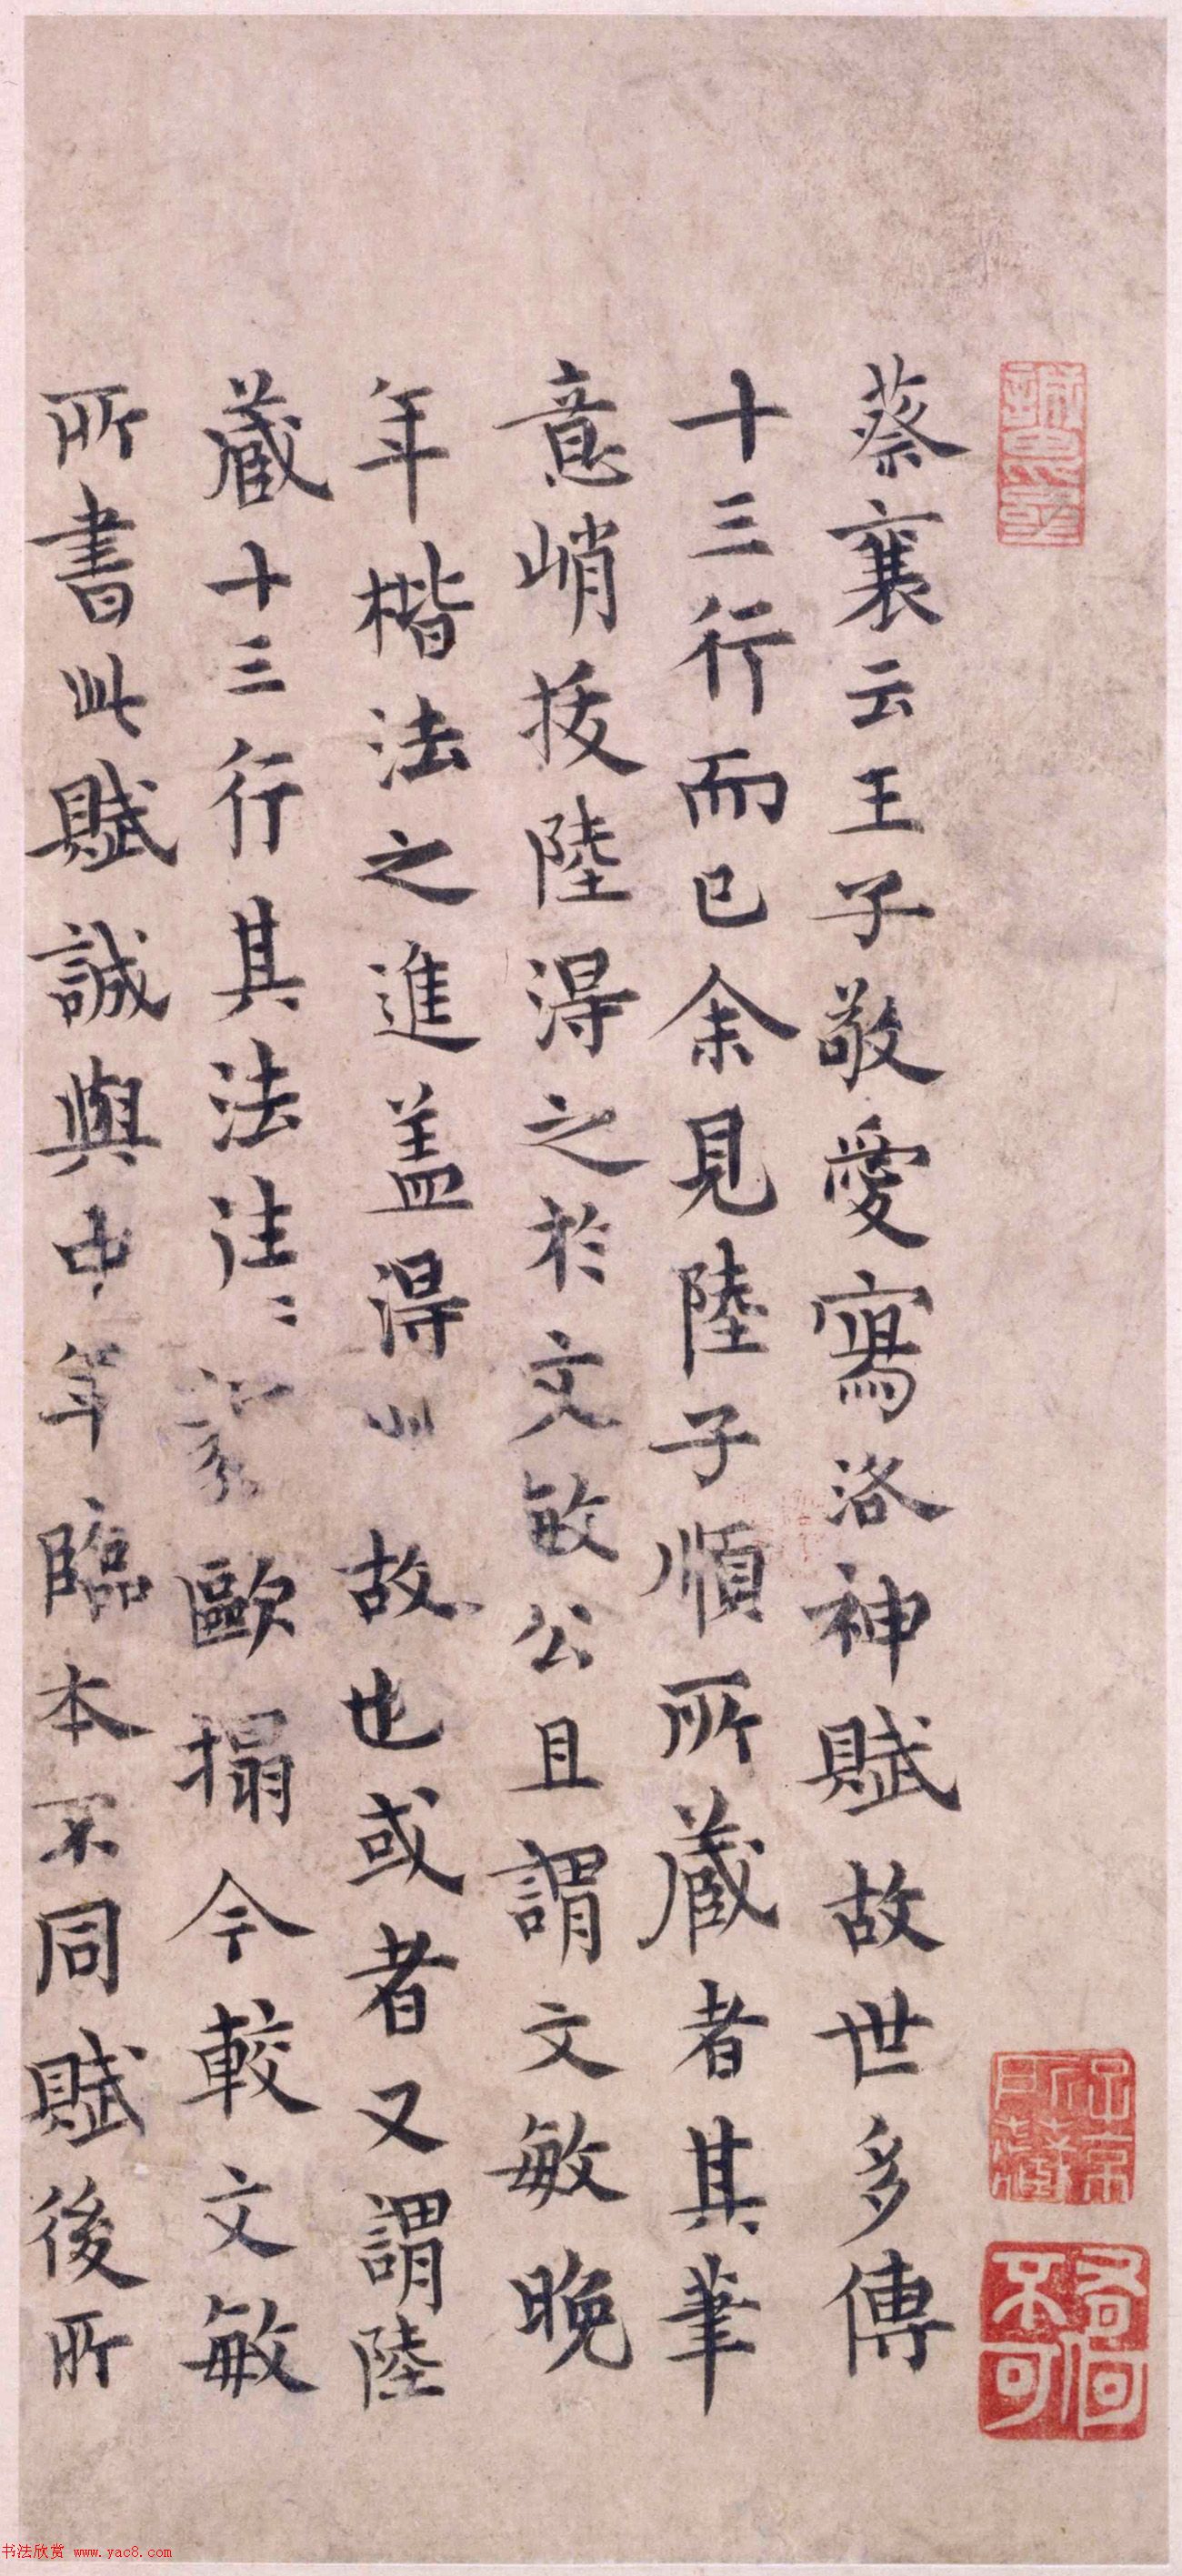 蔡襄云王子敬愛寫洛神賦故世多傳
十三行而已余見陸子順所藏者其筆
意峭拔陸得之於文敏公且謂文敏晚
年楷法之進盖得此故也或者又謂陸
藏十三行其法往〻歐搨今較文敏
所書此賦誠與中年臨本不同賦後所
書法欣赏 www.yac8.com